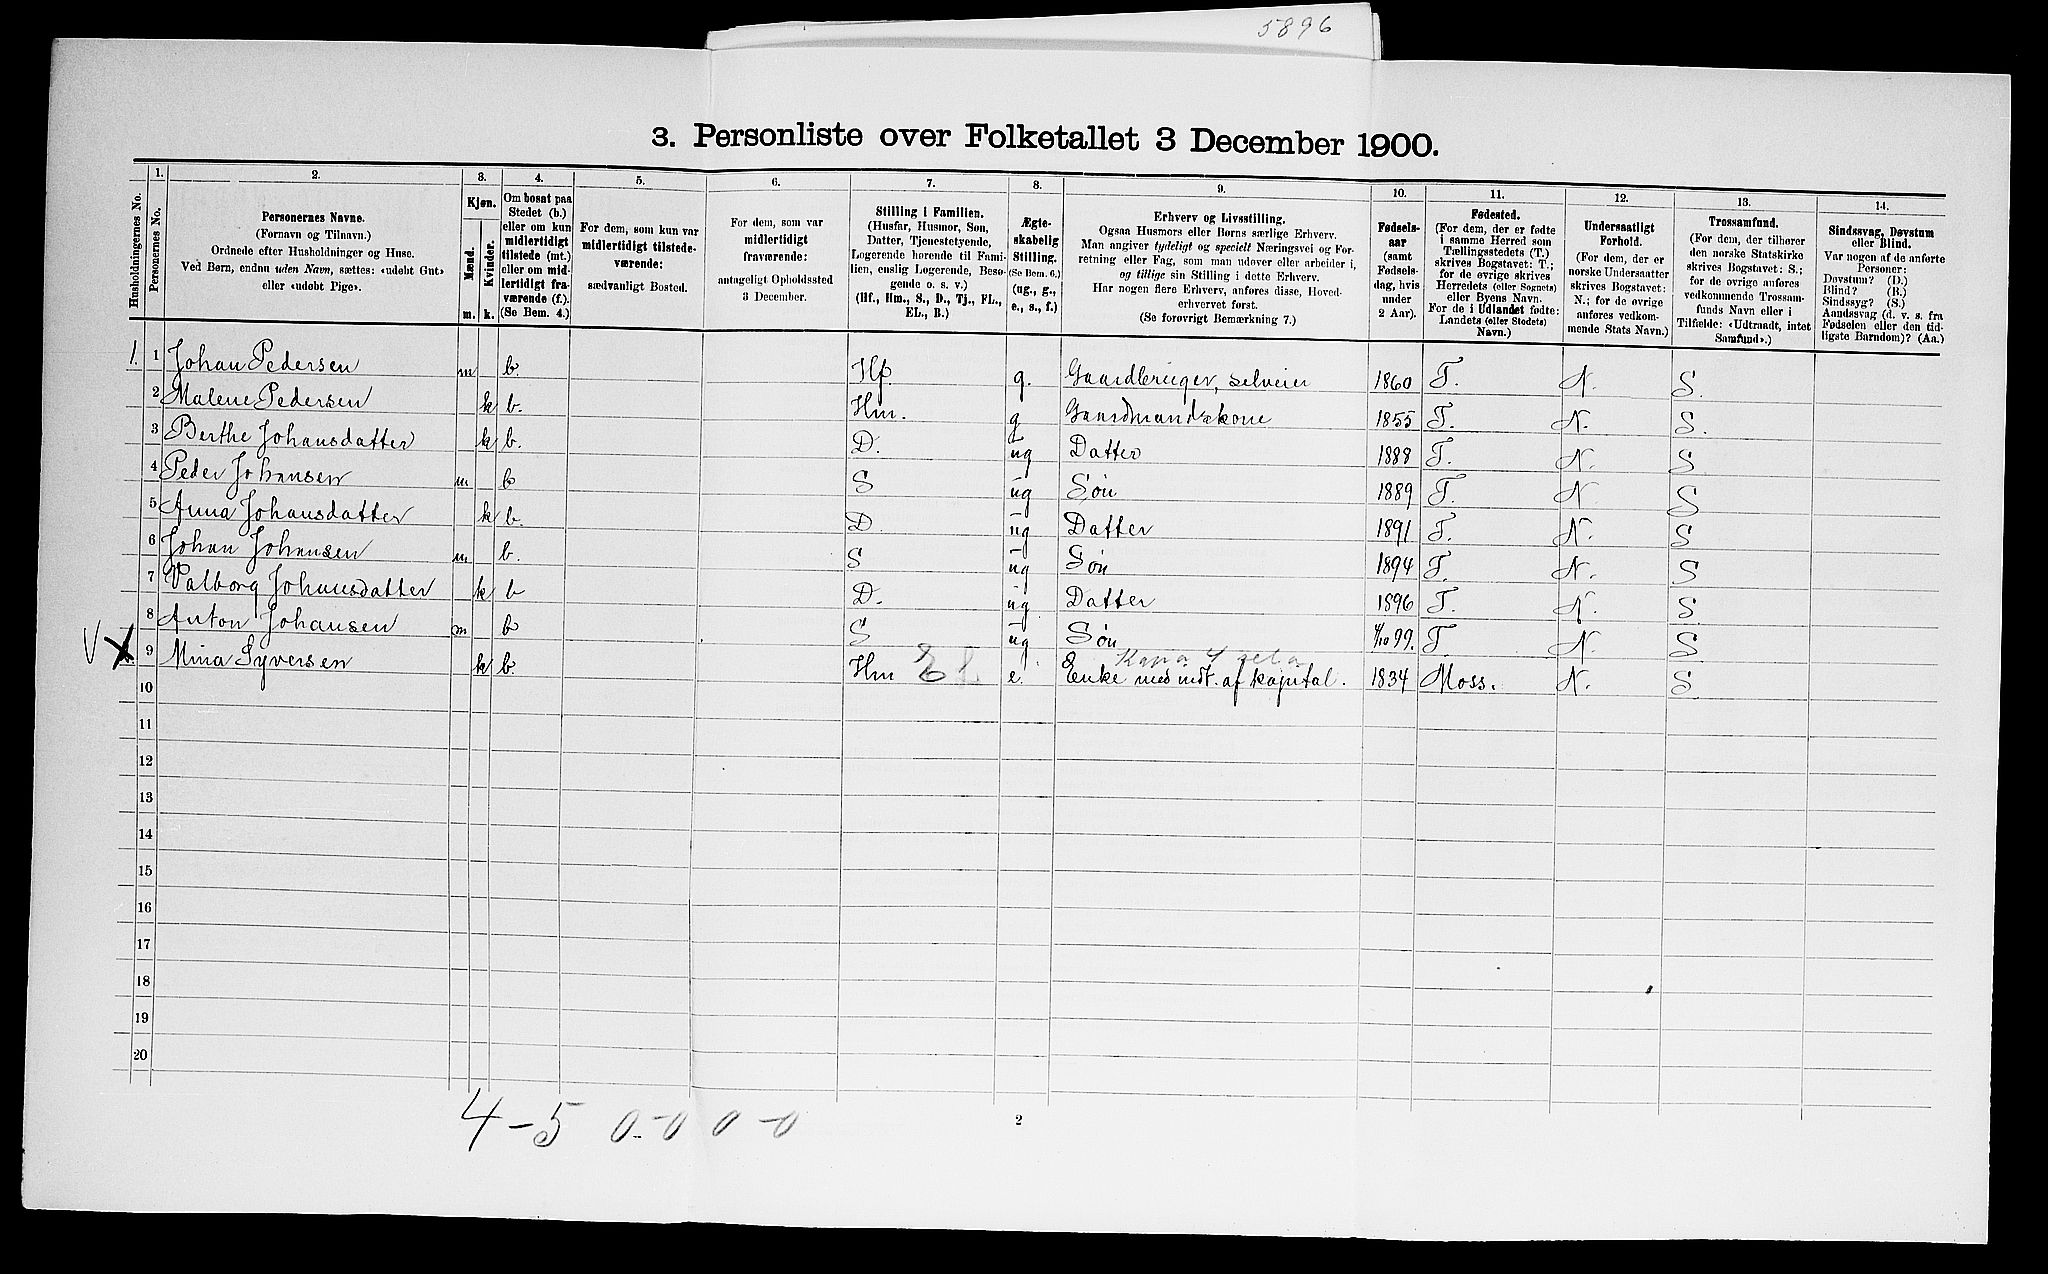 5896
3. Personliste over Folketallet 3 December 1900.
Husholdningernes No.
1.
Personernes No.
2.
Personernes Navne.
(Fornavn og Tilnavn.)
Ordnede efter Husholdninger og Huse.
Ved Børn, endnu uden Navn, sættes: «udøbt Gut»
eller «udøbt Pige».
3.
Kjøn.
Mænd.
Kvinder.
m. k.
4.
Om bosat paa
Stedet (b.)
eller om kun
midlertidigt
tilstede (mt.)
eller om mid-
lertidigt fra-
værende (f.).
(Se Bem. 4.)
5.
For dem, som kun var
midlertidigt tilstede-
værende:
sædvanligt Bosted.
6.
For dem, som var
midlertidigt
fraværende:
antageligt Opholdssted
3 December.
7.
Stilling i Familien.
(Husfar, Husmor, Søn,
Datter, Tjenestetyende,
Logerende hørende til Fami-
lien, enslig Logerende, Besø-
gende o. s. v.)
(Hf., Hm., S., D., Tj., FL.,
EL., B.)
8.
Ægte-
skabelig
Stilling.
(Se Bem. 6.)
(ug., g.,
e., s., f.)
9.
Erhverv og Livsstilling.
Ogsaa Husmors eller Børns særlige Erhverv.
Man angiver tydeligt og specielt Næringsvei og For-
retning eller Fag, som man udøver eller arbeider i,
og tillige sin Stilling i dette Erhverv.
Har nogen flere Erhverv, anføres disse, Hoved-
erhvervet først.
(Se forøvrigt Bemærkning 7.)
10.
Fødsels-
aar
(samt
Fødsels-
dag, hvis
under
2 Aar).
11.
Fødested.
(For dem, der er fødte
i samme Herred som
Tællingsstedets (T.)
skrives Bogstavet: T.;
for de øvrige skrives
Herredets (eller Sognets)
eller Byens Navn.
For de i Udlandet fødte:
Landets (eller Stedets)
Navn.)
12.
Undersaatligt
Forhold.
(For dem, der er
norske Undersaatter
skrives Bogstavet:
N.; for de øvrige
anføres vedkom-
mende Stats Navn.)
13.
Trossamfund.
(For dem, der tilhører
den norske Statskirke
skrives Bogstavet: S.;
for de øvrige anføres
vedkommende Trossam-
funds Navn eller i
Tilfælde: «Udtraadt, intet
Samfund».)
14.
Sindssvag, Døvstum
eller Blind.
Var nogen af de anførte
Personer:
Døvstum? (D.)
Blind? (B.)
Sindssyg? (S.)
Aandssvag (d. v. s. fra
Fødselen eller den tid-
ligste Barndom)? (Aa.)
1. 1 Johan Pedersen m b. Hf. g. Gaardbruger, selveier 1860 T. N. S.
2 Malene Pedersen k b. Hm. g Gaardmandskone 1855 T. N. S.
3 Berthe Johansdatter k b. D. ug Datter 1888 T. N. S
4 Peder Johansen m b S ug Søn 1889 T. N. S
5 Anna Johansdatter k b. D. ug Datter 1891 T. N. S
6 Johan Johansen m b. S ug Søn 1894 T. N. S
7 Valborg Johansdatter k b D. ug Datter 1896 T. N. S
8 Anton Johansen m b S ug Søn 4/10 99. T. N. S
V X 9 Mina Syversen k b. Hm El e. Enke med indt. af kapital. 1834 Moss. N. S
10
11
12
13
14
15
16
17
18
19
20
4-5 0-0 0-0
2